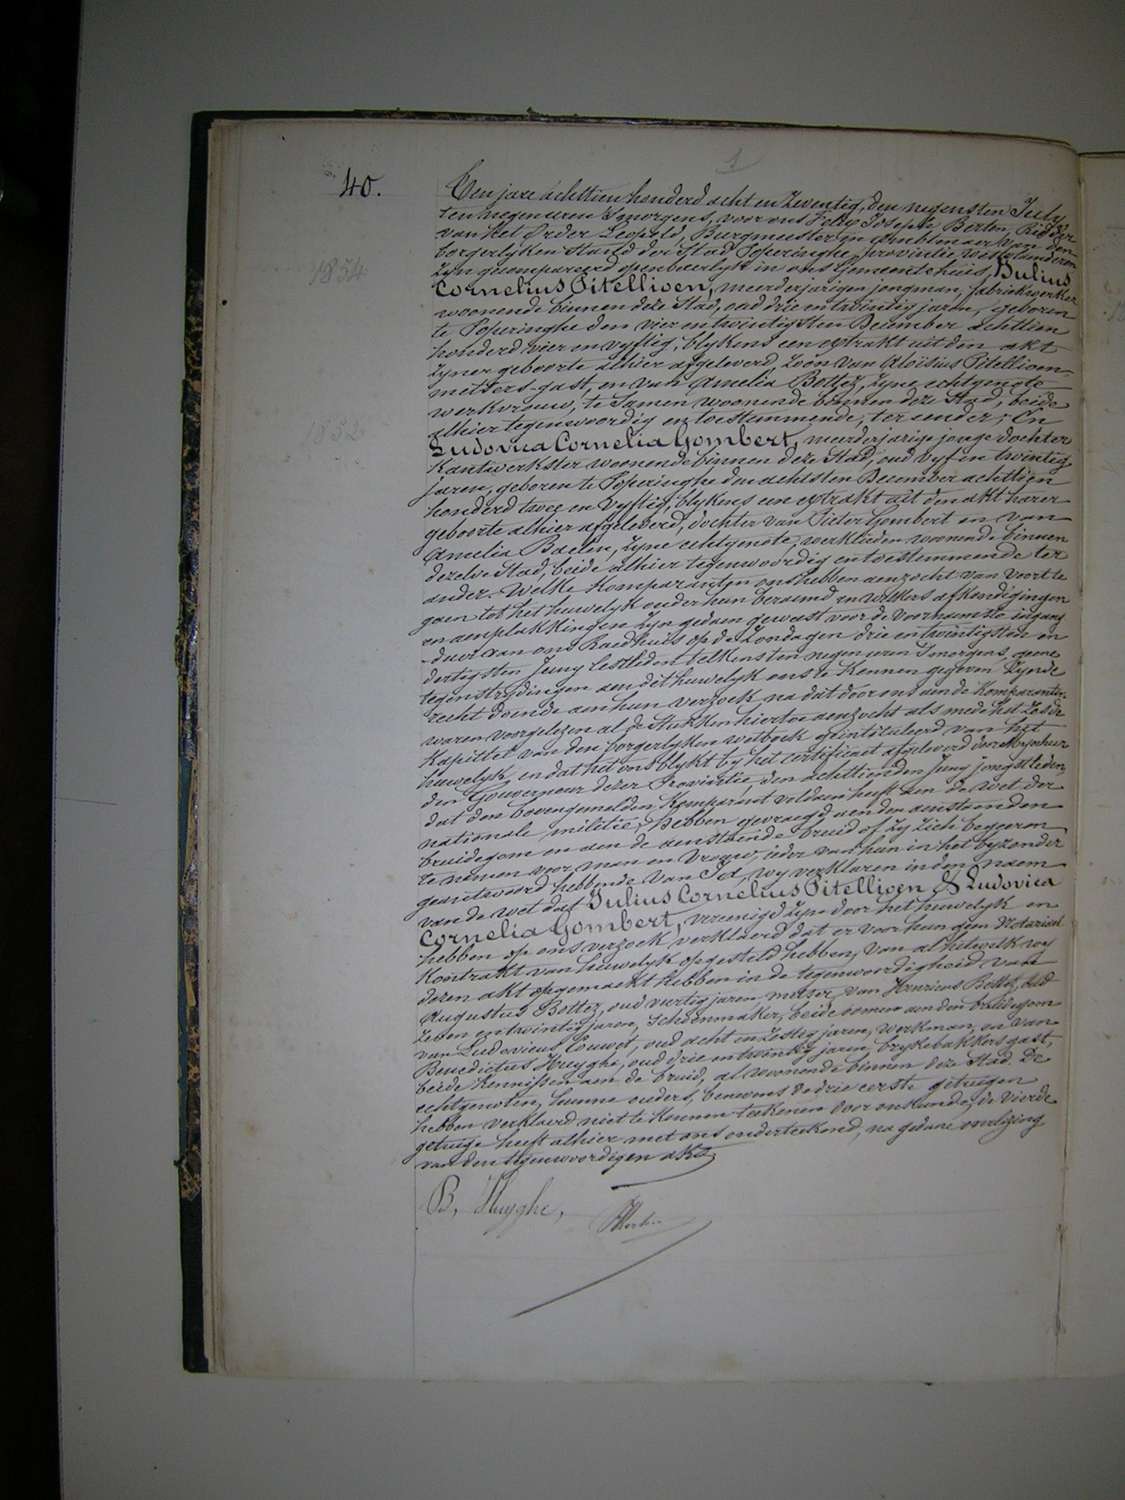 1
40.
Ten jare achttien honderd acht en zeventig, den negensten July
ten negen uren s'morgens, voor ons Felix Joseph Berten, Ridder
van het Order Leopold, Burgmeester en Amblenaer van den
borgerlyken Staat der Stad Poperinghe, provintie Westvlanderen
zyn gecompareerd openbaerlyk in ons Gemeentehuis, Julius
1854
Cornelius Pitellioen, meerderjarigen jongman, fabriekwerker
woonende binnen deze Stad, oud drie en twintig jaren, geboren
te Poperinghe den vier en twintigsten December achttien
honderd vier en vyftig, blykens een extrakt uit den akt
zyner geboorte alhier afgeleverd zoon van Aloïsius Pitellioen
metsers-gast, en van Amelia Bottez, zyne echtgenote
werkvrouw, te samen woonende binnen deze Stad, beide
alhier tegenwoordig en toestemmende, ter eender; En
1852
Ludovica Cornelia Gombert, meerderjarige jonge dochter
kantwerkster woonende binnen deze Stad, oud vyf en twintig
jaren, geboren te Poperinghe den achtsten December achttien
honderd twee en vyftig, blykens een extrakt uit den akt harer
geboorte alhier afgeleverd, dochter van Pieter Gombert en van
Amelia Baelen, zyne echtgenote, werklieden woonende binnen
dezelve Stad, beide alhier tegenwoordig en toestemmende ter
ander. Welke Komparanten ons hebben aenzocht van voort te
gaen tot het huwelyk onder hun beraemd en wilkers afkondigingen
en aenplakkingen zyn gedaen geweest voor de voornaemste ingang
deur van ons Raedhuis op de zondagen drie en twintigsten en
dertigsten Juny lestleden telkens ten negen uren s'morgens, geene
tegenstrydingen aen dit huwelyk ons te kennen gegeven zynde
recht doende aen hun verzoek na dat door ons aen de Komparanten
waren voorgelezen al de Stukken hiertoe aenzocht als mede het zesde
kapittel van den borgerlyken wetboek geintituleerd van het
huwelyk, en dat het ons blykt by het certificaet afgeleverd door Mynheer
den Gouverneur dezer Provintie, den achttienden Juny jongstleden,
dat den bovengemelden Komparant voldaen heeft aen de wet der
nationale militie, hebben gevraegd aen den aenstaenden
bruidegom en aen de aenstaende bruid of zy zich begeeren
te nemen voor man en vrouw, ieder van hun in het byzonder
geantwoord hebbende van Ja, wy verklaren in den naem
van de wet dat Julius Cornelius Pitellioen & Ludovica
Cornelia Gombert, vereenigd zyn door het huwelyk en
hebben op ons verzoek verklaerd dat er voor hun geen Notariael
Kontrakt van huwelyk opgesteld hebben, van al hetwelk wy
dezen akt opgemaekt hebben in de tegenwoordigheid van
Augustus Bottez, oud veertig jaren metser, van Henricus Bottez, oud
zeven en twintig jaren, Schoenmaker, beide oomen aen den bruidegom
van Ludovicus Couwet, oud acht en zestig jaren, werkman, en van
Benedictus Huyghe, oud drie en twintig jaren, brykebakkers gast,
beide kennissen aen de bruid, al woonende binnen deze Stad. De
echtgenoten, hunne ouders, benevens de drie eerste getuigen
hebben verklaerd niet te kunnen teekenen door onkunde, de vierde
getuige heeft alhier met ons onderteekend, na gedane voorlezing
van den tegenwoordigen akt
B. Huyghe,